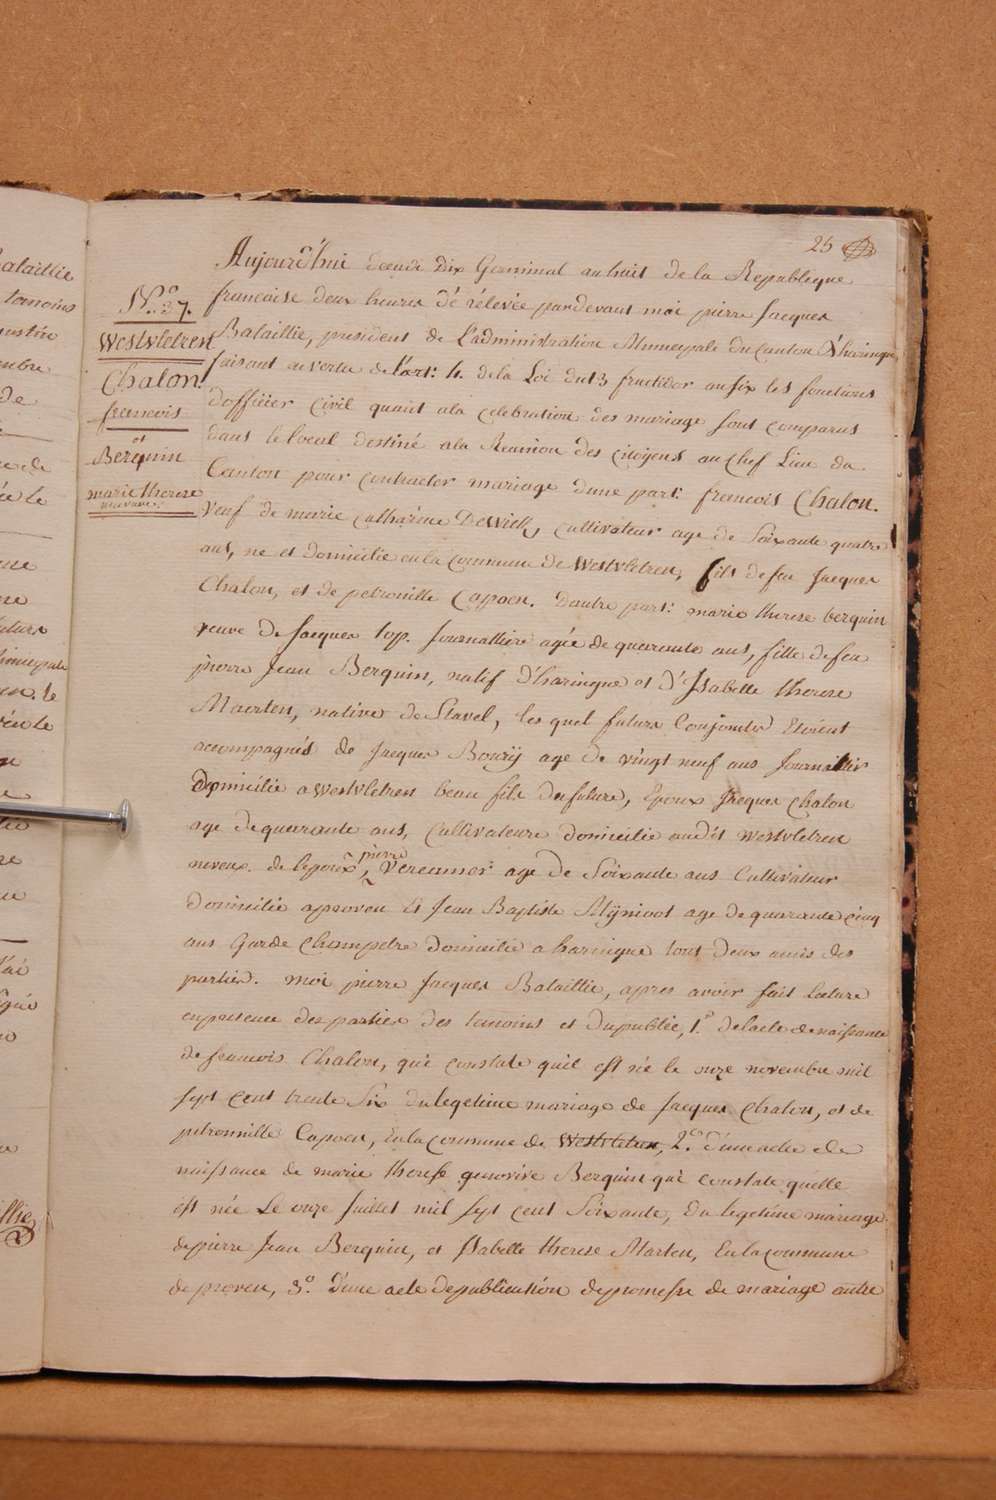 25
Aujourd'hui decadi dix Germinal an huit de la Republeque
francaise deux heures dé rélevée pardevant moi pierre Jacques
Bataillie, president de L'administration Municipale du Canton D'haringue
faisant en vertu de l'art: 4. de la Loi du 13 fructidor an six les fonctions
d'officier Civil quant a la celebration des mariage sont comparus
dans le local destiné a la Reunion des citoyens au Chef Lieu du
Canton pour contracter mariage d'une part: francois Chalon.
Veuf de marie catharine Dewick, cultivateur age de Soixante quatre
ans, ne et domicilie en la commune de Westvletren, fils de feu Jacques
Chalon, et de petronille Capoen. D'autre part: marie therese berquin
veuve de Jacques top. Journalliere agée de quarante ans, fille de feu
pierre Jean Berquin, natif d'haringue et d'Isabelle therese
Maerten, native de Stavel, les quel futurs Conjoints Etoient
accompagnés de Jacques Boury age de vingt neuf ans Journallier
Domicilie a westvletren beau fils du future, Epoux Jacques Chalon
age de quarante ans, Cultivateure domicilie audit westvletren
neveux. de l'epoux, pierre Vereunner age de Soixante ans Cultivateur
domicilie a proven Et Jean Baptiste Mynioot age de quarante cinq
ans Garde Champetre domicilie a haringue tout deux amis des
parties. moi pierre Jacques Bataillie, apres avoir fait Lecture
en presence des parties des temoins et du publie, 1.º de l'acte de naissance
de francois Chalon, qui constate qu'il est né le onze novembre mil
sept cent trente Six du legetime mariage de Jacques Chalon, et de
petronnille Capoen, En la commune de Westvletren, 2.º d'une acte de
naissance de marie therese genovive Berquin qui constate qu'elle
est née Le onze Juillet mil sept cent Soixante, du legetime mariage
de pierre Jean Berquin, et Isabelle therese Marten, En la commune
de proven, 3.º d'une acte de publication de promesse de mariage entre
N.º 37.
Westvletren
Chalon
francois
et
Berquin
marie therese
bataillie
temoins
de
le